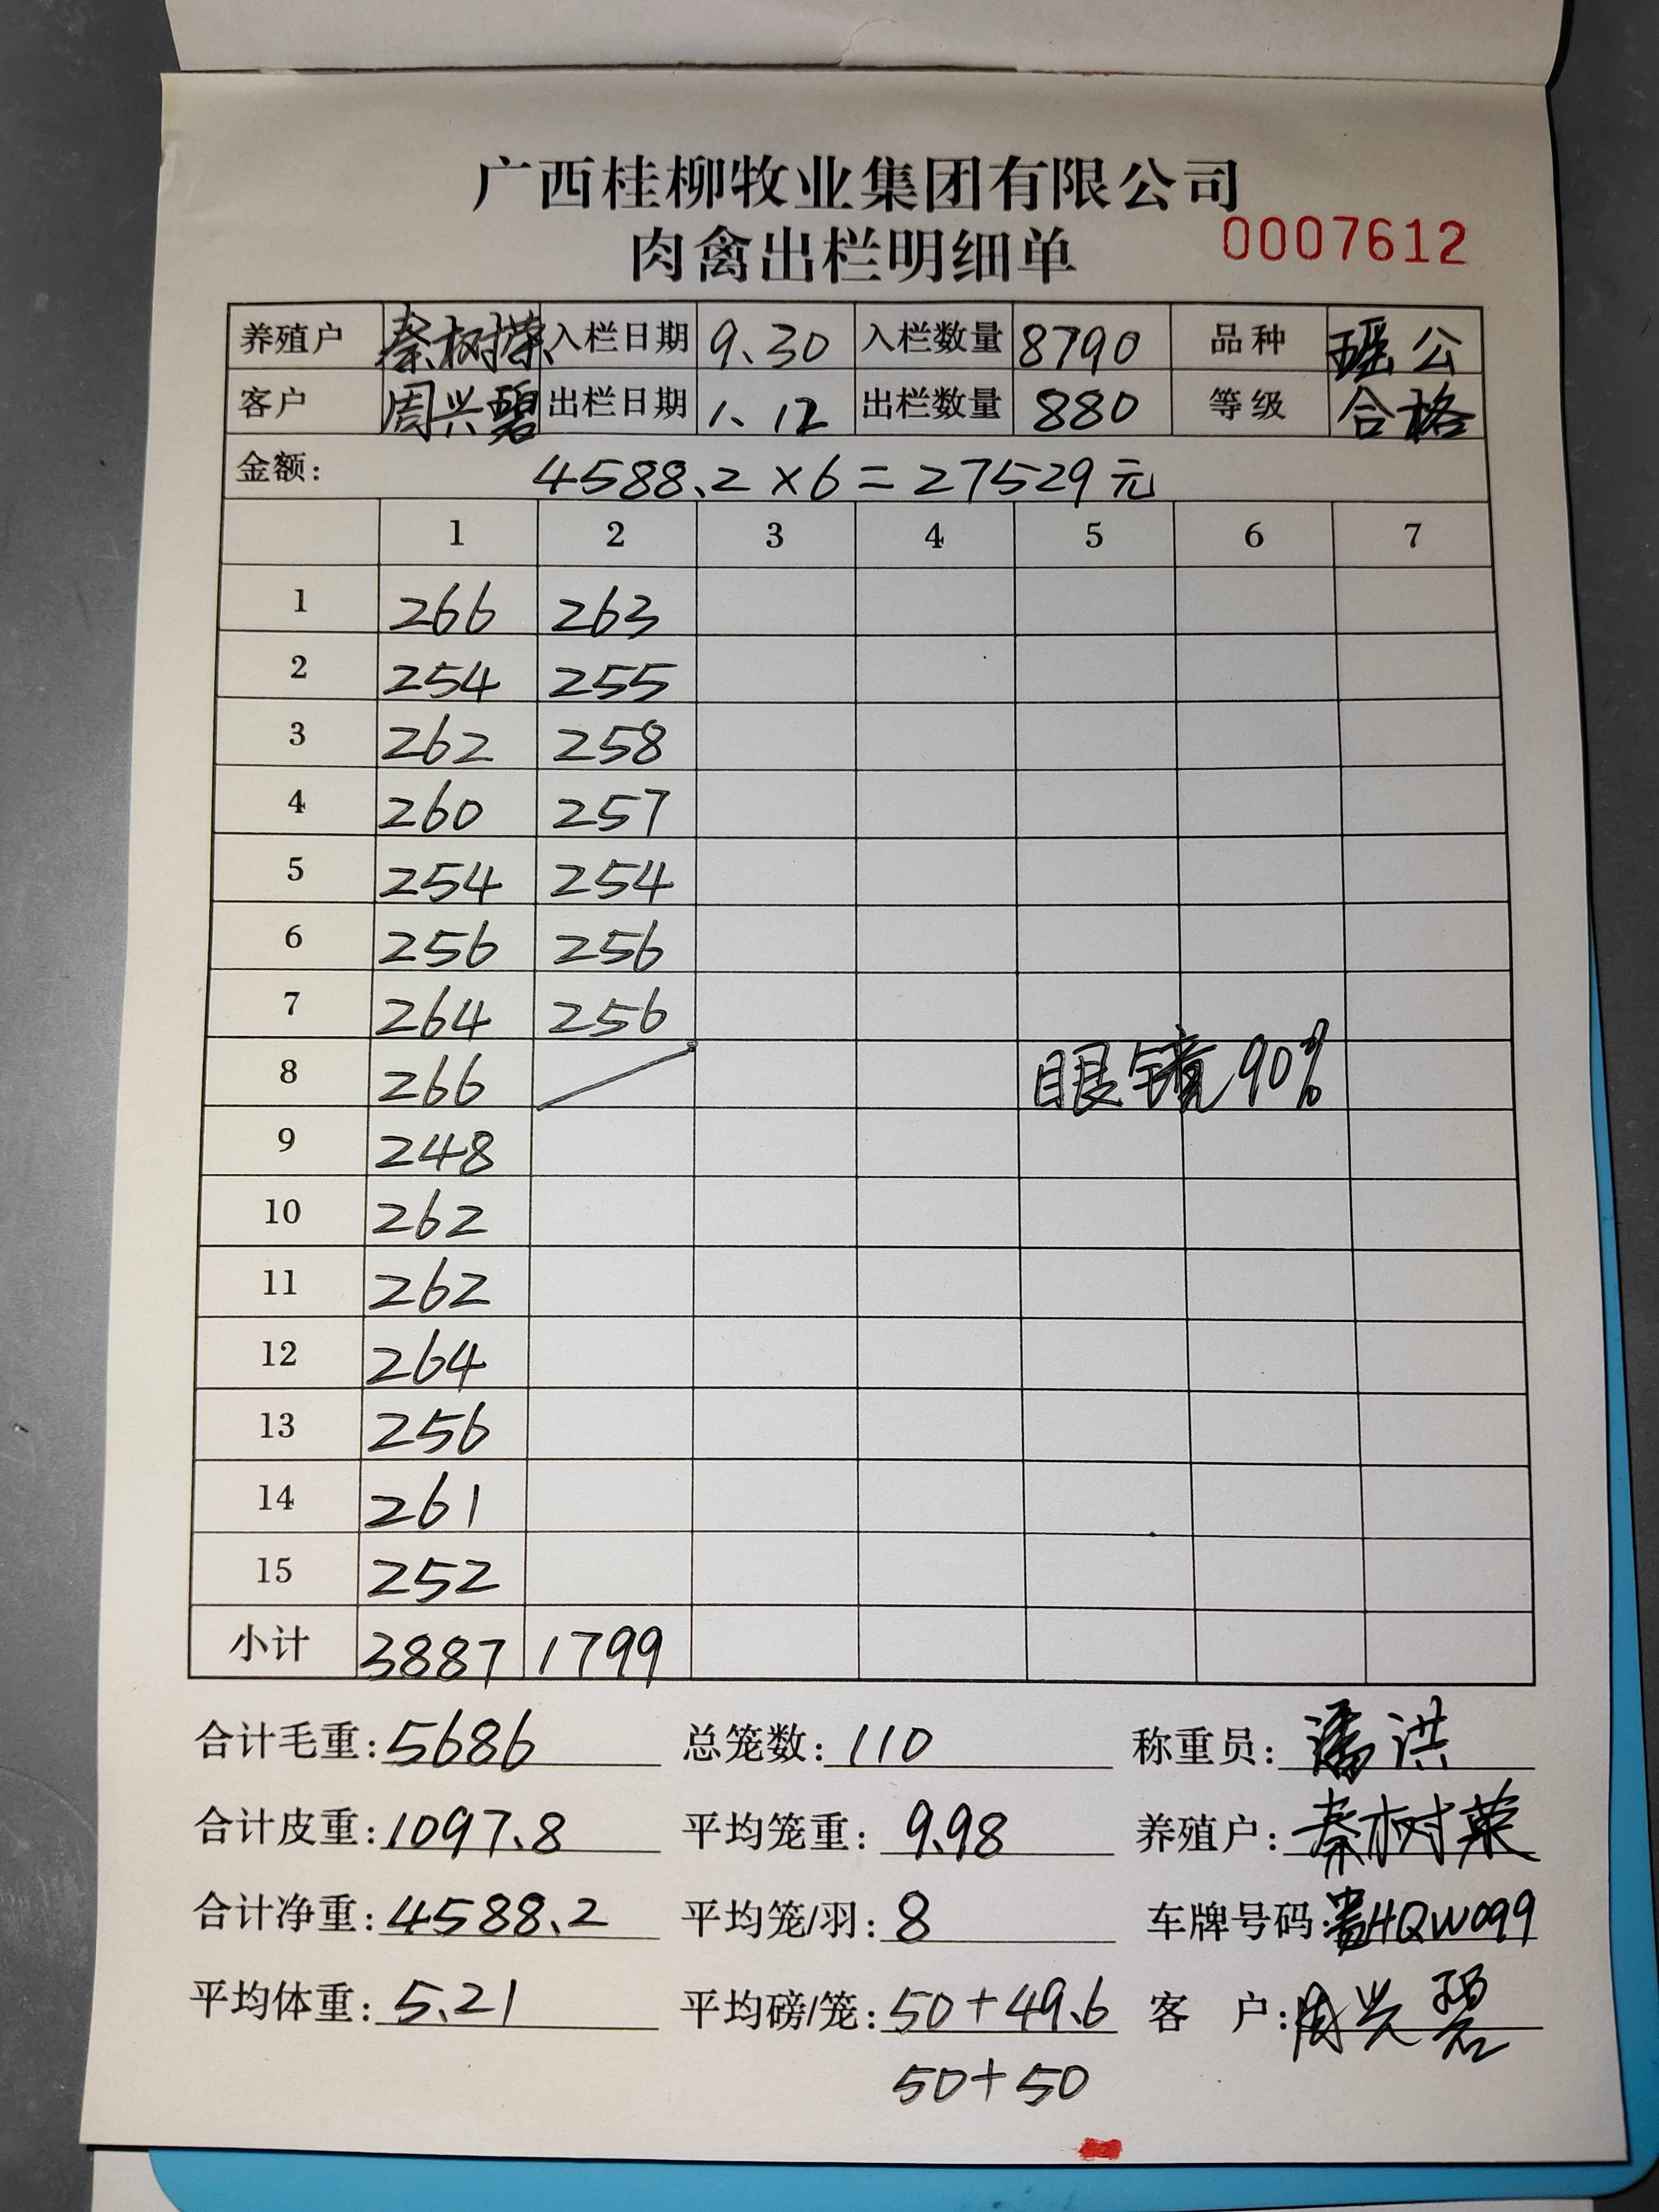 广西桂柳牧业集团有限公司
肉禽出栏明细单 0007612
养殖户 秦树荣 入栏日期 9.30 入栏数量 8790 品种 瑶公
客户 周兴碧 出栏日期 1.12 出栏数量 880 等级 合格
金额: 4588.2×6=27529元
1 2 3 4 5 6 7
1 266 263
2 254 255
3 262 258
4 260 257
5 254 254
6 256 256
7 264 256
8 266 眼镜90%
9 248
10 262
11 262
12 264
13 256
14 261
15 252
小计 3887 1799
合计毛重: 5686 总笼数: 110 称重员: 潘洪
合计皮重: 1097.8 平均笼重: 9.98 养殖户: 秦树荣
合计净重: 4588.2 平均笼/羽: 8 车牌号码: 贵HQW099
平均体重: 5.21 平均磅/笼: 50+49.6 客户: 周兴碧
50+50